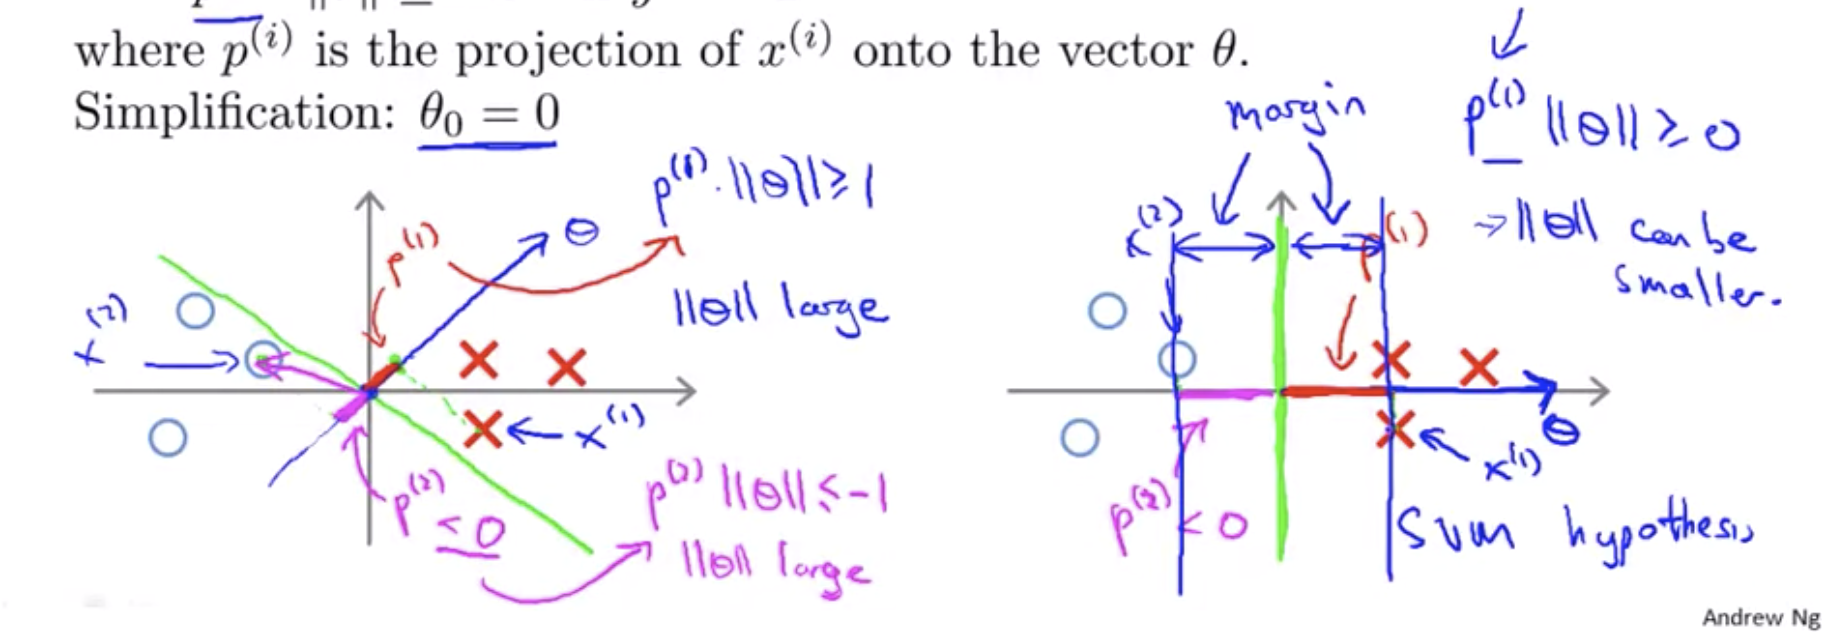 where p^(i) is the projection of x^(i) onto the vector θ.
Simplification: θ₀ = 0
p^(1) · ||θ|| ≥ 1
p^(1)
θ
||θ|| large
x^(2)
x^(1)
p^(2) < 0
p^(2) ||θ|| ≤ -1
||θ|| large
margin
p^(1) ||θ|| ≥ 0
→ ||θ|| can be
smaller.
x^(2)
p^(1)
θ
x^(1)
p^(2) < 0
SVM hypothesis
Andrew Ng